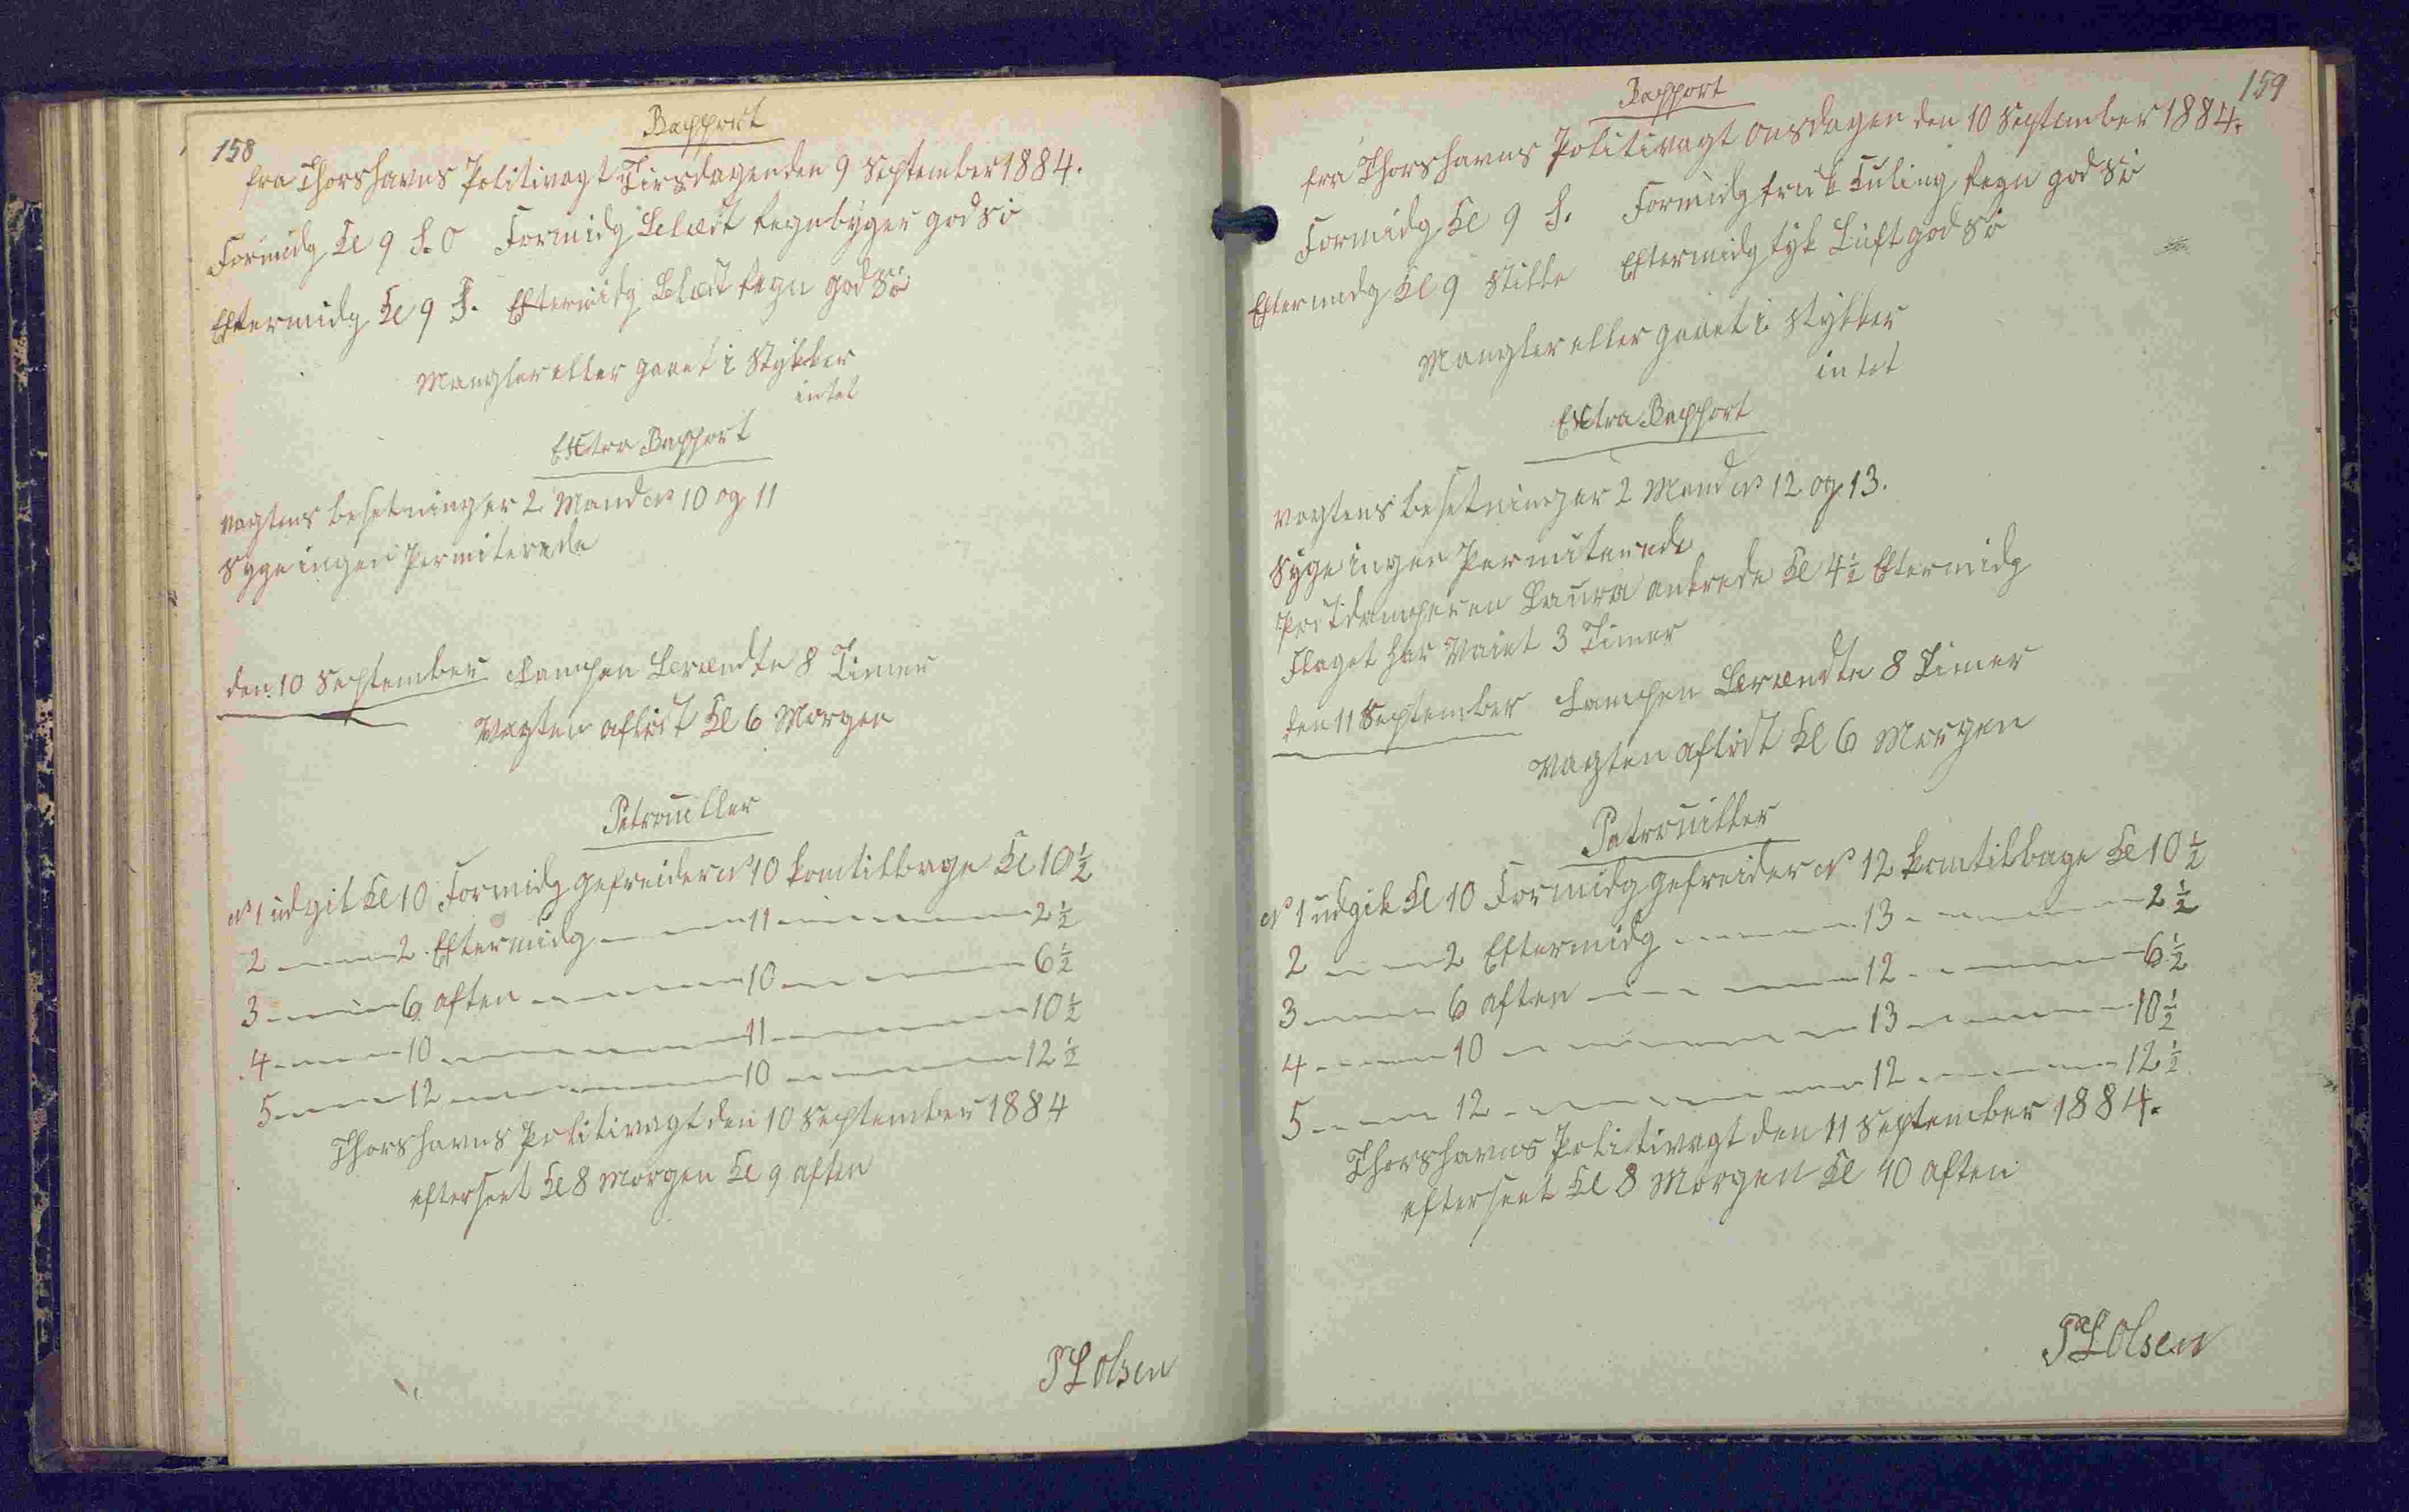 158
Rapport
fra Thorshavns Politivagt Tirsdagen den 9 September 1884.
Formidg Kl 9 S. O Formidg Blæst regnbyger god Sö
Eftermidg Kl 9 S. Eftermidg Blæst regn god Sö
Mangler eller gaaet i Stykker
intet
Extra Rapport
vagtens besetning er 2 Mand No 10 og 11
Syge ingen Permiterede
den 10 September Lampen Brændte 8 Timer
Vagten aflöst Kl 6 Morgen
Patrouller
No 1 udgik Kl 10 Formidg gefreider No 10 kom tilbage Kl 10 1/2
2 — 2 Eftermidg — 11 — 2 1/2
3 — 6 aften — 10 — 6 1/2
4 — 10 — 11 — 10 1/2
5 — 12 — 10 — 12 1/2
Thorshavns Politivagt den 10 September 1884
efterseet Kl 8 Morgen Kl 9 aften
P L Olsen
159
Rapport
fra Thorshavns Politivagt Onsdagen den 10 September 1884.
Formidg Kl 9 S. Formidg frisk Kuling regn god Sö
Eftermidg Kl 9 Stille Eftermidg tyk Luft god Sö
Mangler eller gaaet i Stykker
intet
Extra Rapport
vagtens besetning er 2 Mand No 12 og 13.
Syge ingen Permiterede
Postdamperen Laura ankrede Kl 4 1/2 Eftermidg
Flaget har Vaiet 3 Timer
den 11 September Lampen Brændte 8 Timer
Vagten aflöst Kl 6 Morgen
Patrouiller
No 1 udgik Kl 10 Formidg gefreider No 12 kom tilbage Kl 10 1/2
2 — 2 Eftermidg — 13 — 2 1/2
3 — 6 aften — 12 — 6 1/2
4 — 10 — 13 — 10 1/2
5 — 12 — 12 — 12 1/2
Thorshavns Politivagt den 11 September 1884.
efterseet Kl 8 Morgen Kl 10 aften
P L Olsen